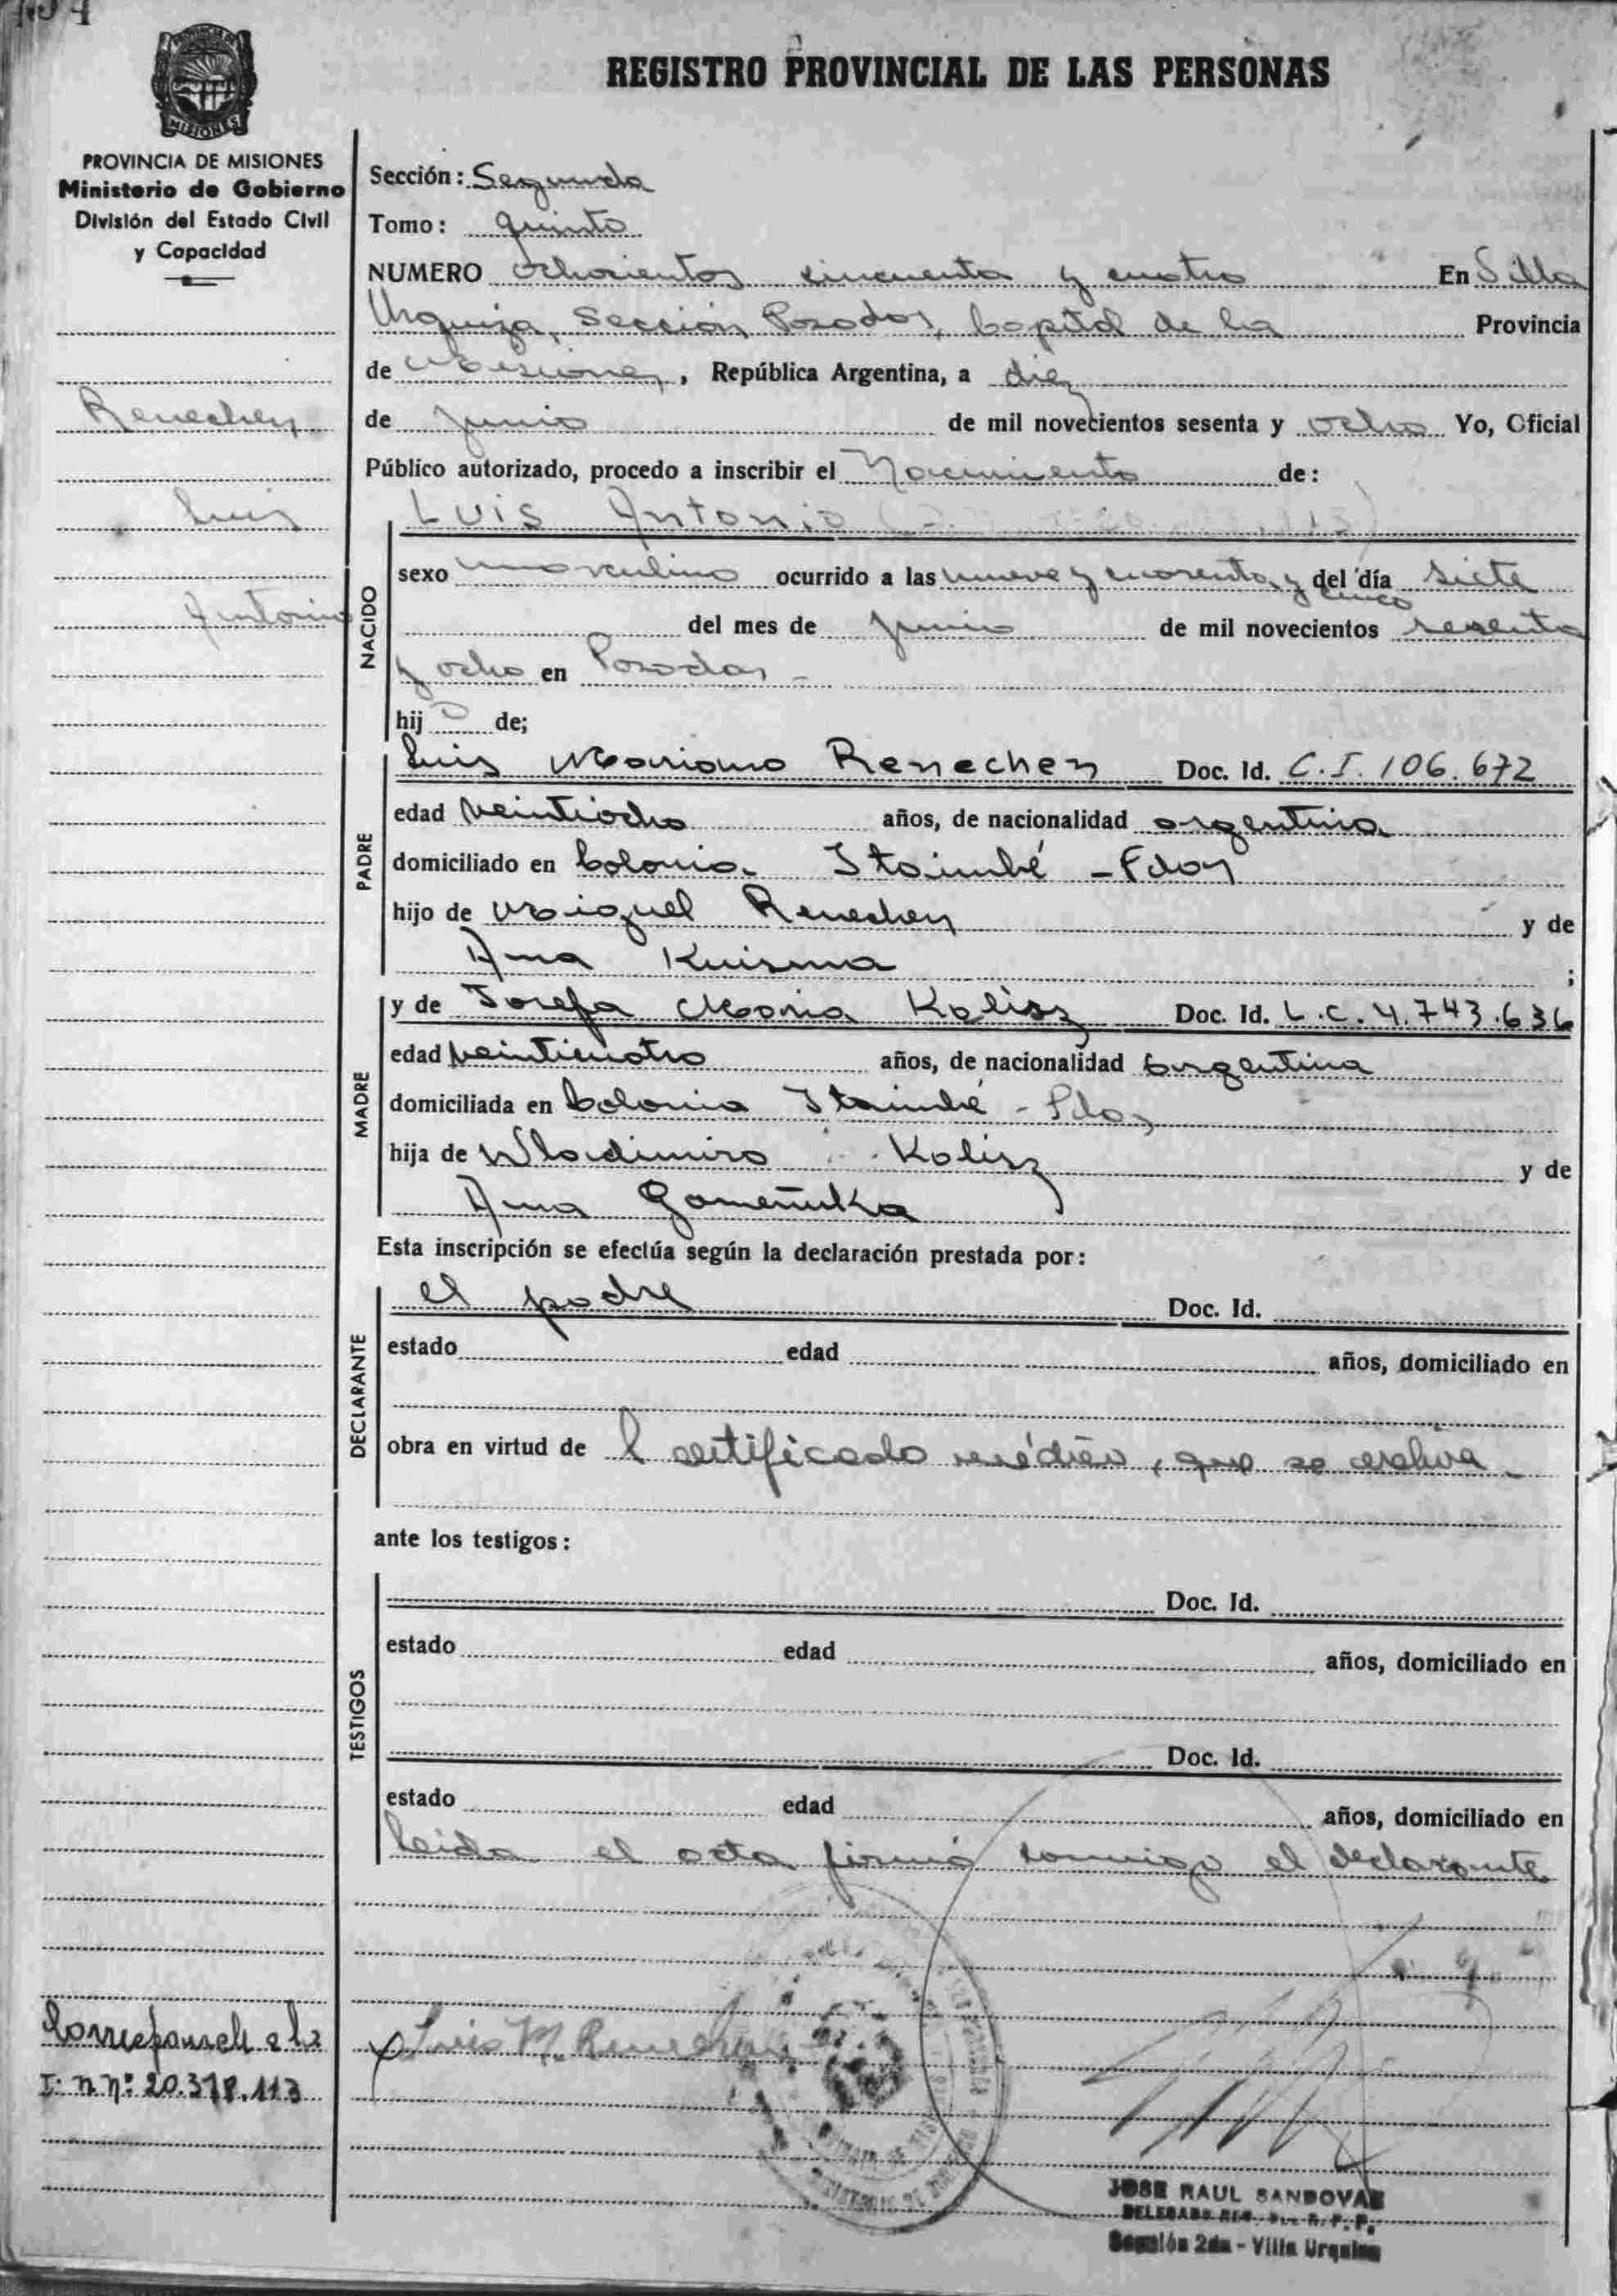 REGISTRO PROVINCIAL DE LAS PERSONAS
MISIONES
PROVINCIA DE MISIONES
Ministerio de Gobierno
División del Estado Civil
y Capacidad
Renechen
Luis
Antonio
Sección: Segunda
Tomo: quinto
NUMERO ochocientos cincuenta y cuatro En Villa
Urquiza, Sección Posadas, Capital de la Provincia
de Misiones, República Argentina, a diez
de junio de mil novecientos sesenta y ocho Yo, Oficial
Público autorizado, procedo a inscribir el Nacimiento de:
LUIS Antonio
NACIDO
sexo masculino ocurrido a las nueve y cuarenta y cinco del día siete
del mes de junio de mil novecientos sesenta
y ocho en Posadas -
hijo de;
PADRE
Luis Mariano Renechen Doc. Id. C.I. 106.672
edad veintiocho años, de nacionalidad argentina
domiciliado en Colonia Itaimbé - Pdas
hijo de Miguel Renechen y de
Ana Kuisma ;
MADRE
y de Josefa Maria Kalisz Doc. Id. L.C. 4.743.636
edad veinticuatro años, de nacionalidad argentina
domiciliada en Colonia Itaimbé - Pdas
hija de Wladimiro Kalisz y de
Ana Gomeñuka
Esta inscripción se efectúa según la declaración prestada por:
DECLARANTE
el padre Doc. Id.
estado edad años, domiciliado en
obra en virtud de l certificado médico, que se archiva -
ante los testigos:
TESTIGOS
Doc. Id.
estado edad años, domiciliado en
Doc. Id.
estado edad años, domiciliado en
Leida el acta firmó conmigo el declarante
Corresponde a la
I: n nº: 20.378.113
Luis M. Renechen
JOSE RAUL SANDOVAL
DELEGADO R. P. P.
Sección 2da - Villa Urquiza